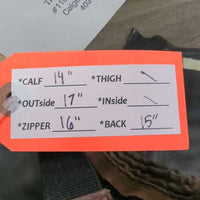 #11
Calg
403
*CALF 14" *THIGH \
*OUTside 17" *INside \
*ZIPPER 16" *BACK 15"